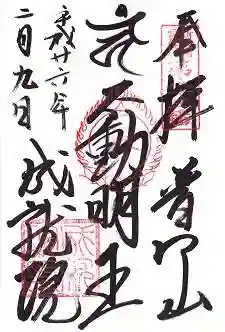 奉拝 普門山
不動明王
成就院
平成廿六年
二月九日